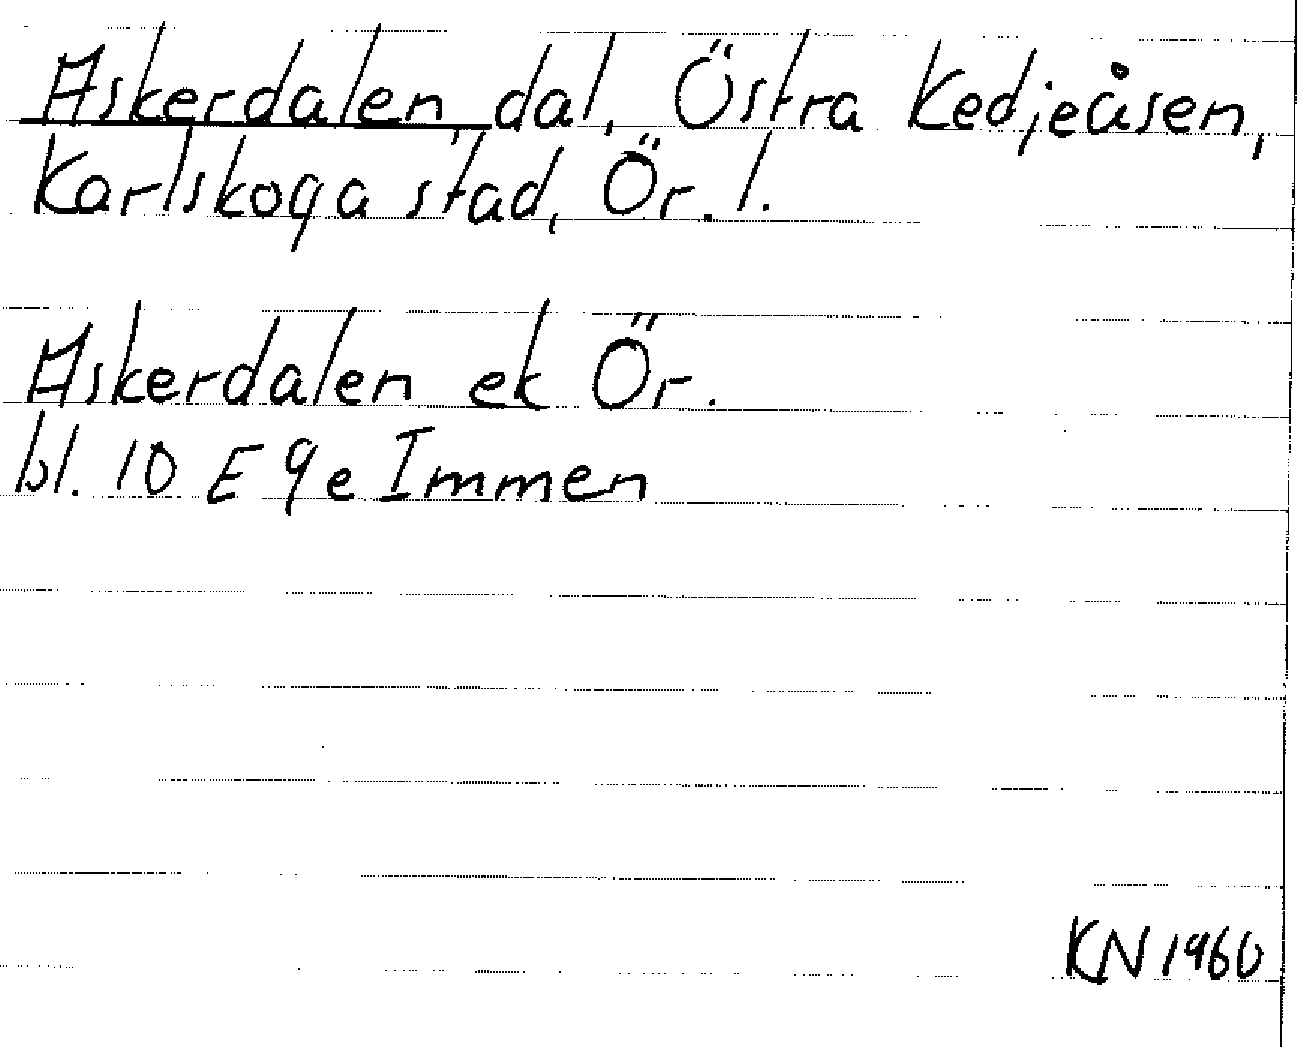 Askerdalen, dal, Östra Kedjeåsen,
Karlskoga stad, Ör. l.
Askerdalen ek Ör.
bl. 10 E 9e Immen
KN 1960